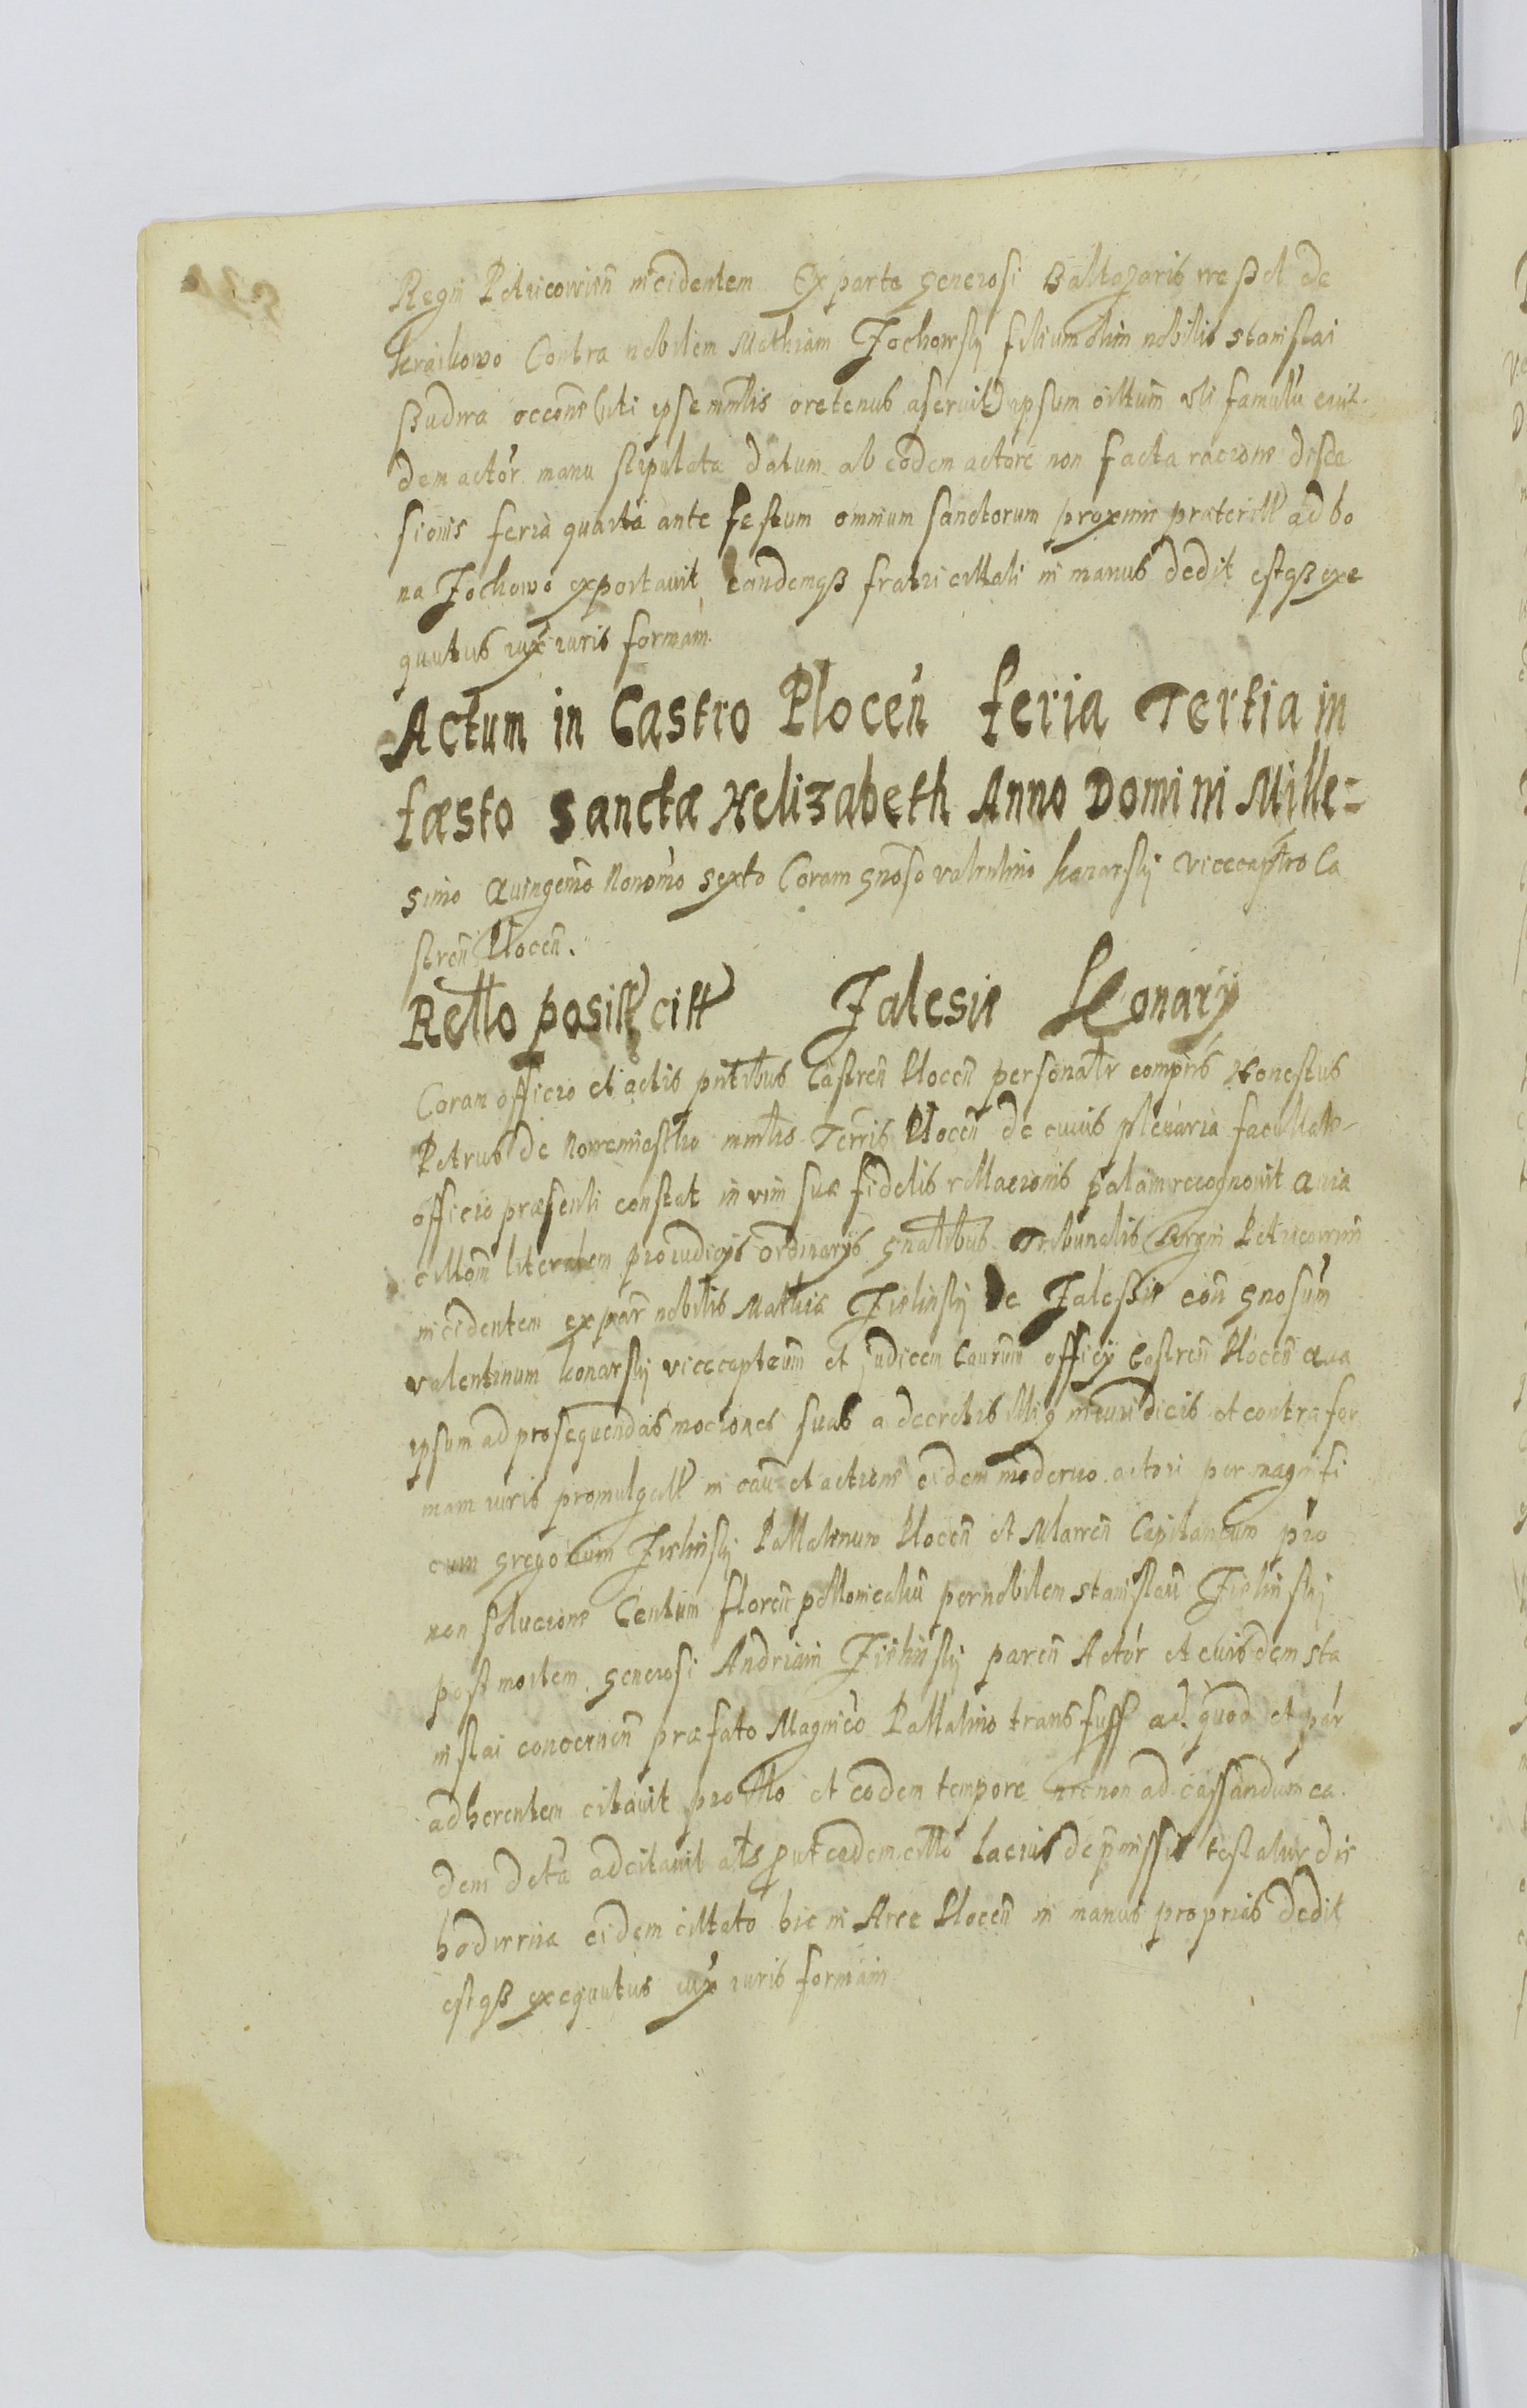 Regni Petricovien̄ incidentem Ex parte generosi Baltazaris weßel de
Kraikowo Contra nobilem Mathiam Jochowsky filium olim nobilis Stanislai
Budwa occone (uti ipse minlis oretenus aseruit) ipsum cittum uti famulū eius
dem actor manu stipulata datum ab eodem actore non facta racione disce
sionis feria quarta ante festum omnium sanctorum proxime praeterit ad bo
na Jochowo exportavit eandemqß fratri cittati in manus dedit estqß exe
quutus iux iuris formam.
Actum in Castro Plocen̄ feria Tertia in
faesto Sanctae Helizabeth Anno Domini Mille=
simo Quingemo Nonomo Sexto Coram gnoso valentino konarsky vicecaptro Ca
stren̄ Plocen̄.
Retlo posit citt Jalesie Konary
Coram officio et actis pntibus Castren̄ Plocen̄ personatr comprs Honestus
Petrus de Nowemiastho mintlis Terris Plocen̄ de cuius plenaria facultate
officio praesenti constat in vim suae fidelis rellacionis palam recognovit Quia
cittom̄ literalem pro iudicijs ordinarijs gnatibus Tribunalis Regni Petricovien̄
incidentem ex par nobilis Mathiae Zielinsky de Jalesßie con̄ gnosum
valentinum konarsky vicecapteum et judicem Caurum officij Castren̄ Plocen̄ Qua
ipsum ad prosequendas mociones suas a decretis illig iniuridicis et contra for
mam iuris promulgatt in cau et actione eidem moderno actori per magnifi
cum gregorium Zielinsky Pallatinum Plocen̄ et Mlawen̄ Capitaneum pro
non solucione Centum floren̄ pollonicaliū per nobilem Stanislau Zielinsky
post mortem generosi Andriani Zielinsky paren̄ Actor et eiusdem Sta
nislai concernen̄ praefato Magnico Pallatino transfuss ad quod et par
adherentem citavit pro tto et eodem tempore necnon ad cassandum ea
dem dcta adcitavit als prout eadem citto lacius de pmissis testatur die
hodierna eidem cittato hic in Arce Plocen̄ in manus proprias dedit
estqß exequutus iux iuris formam